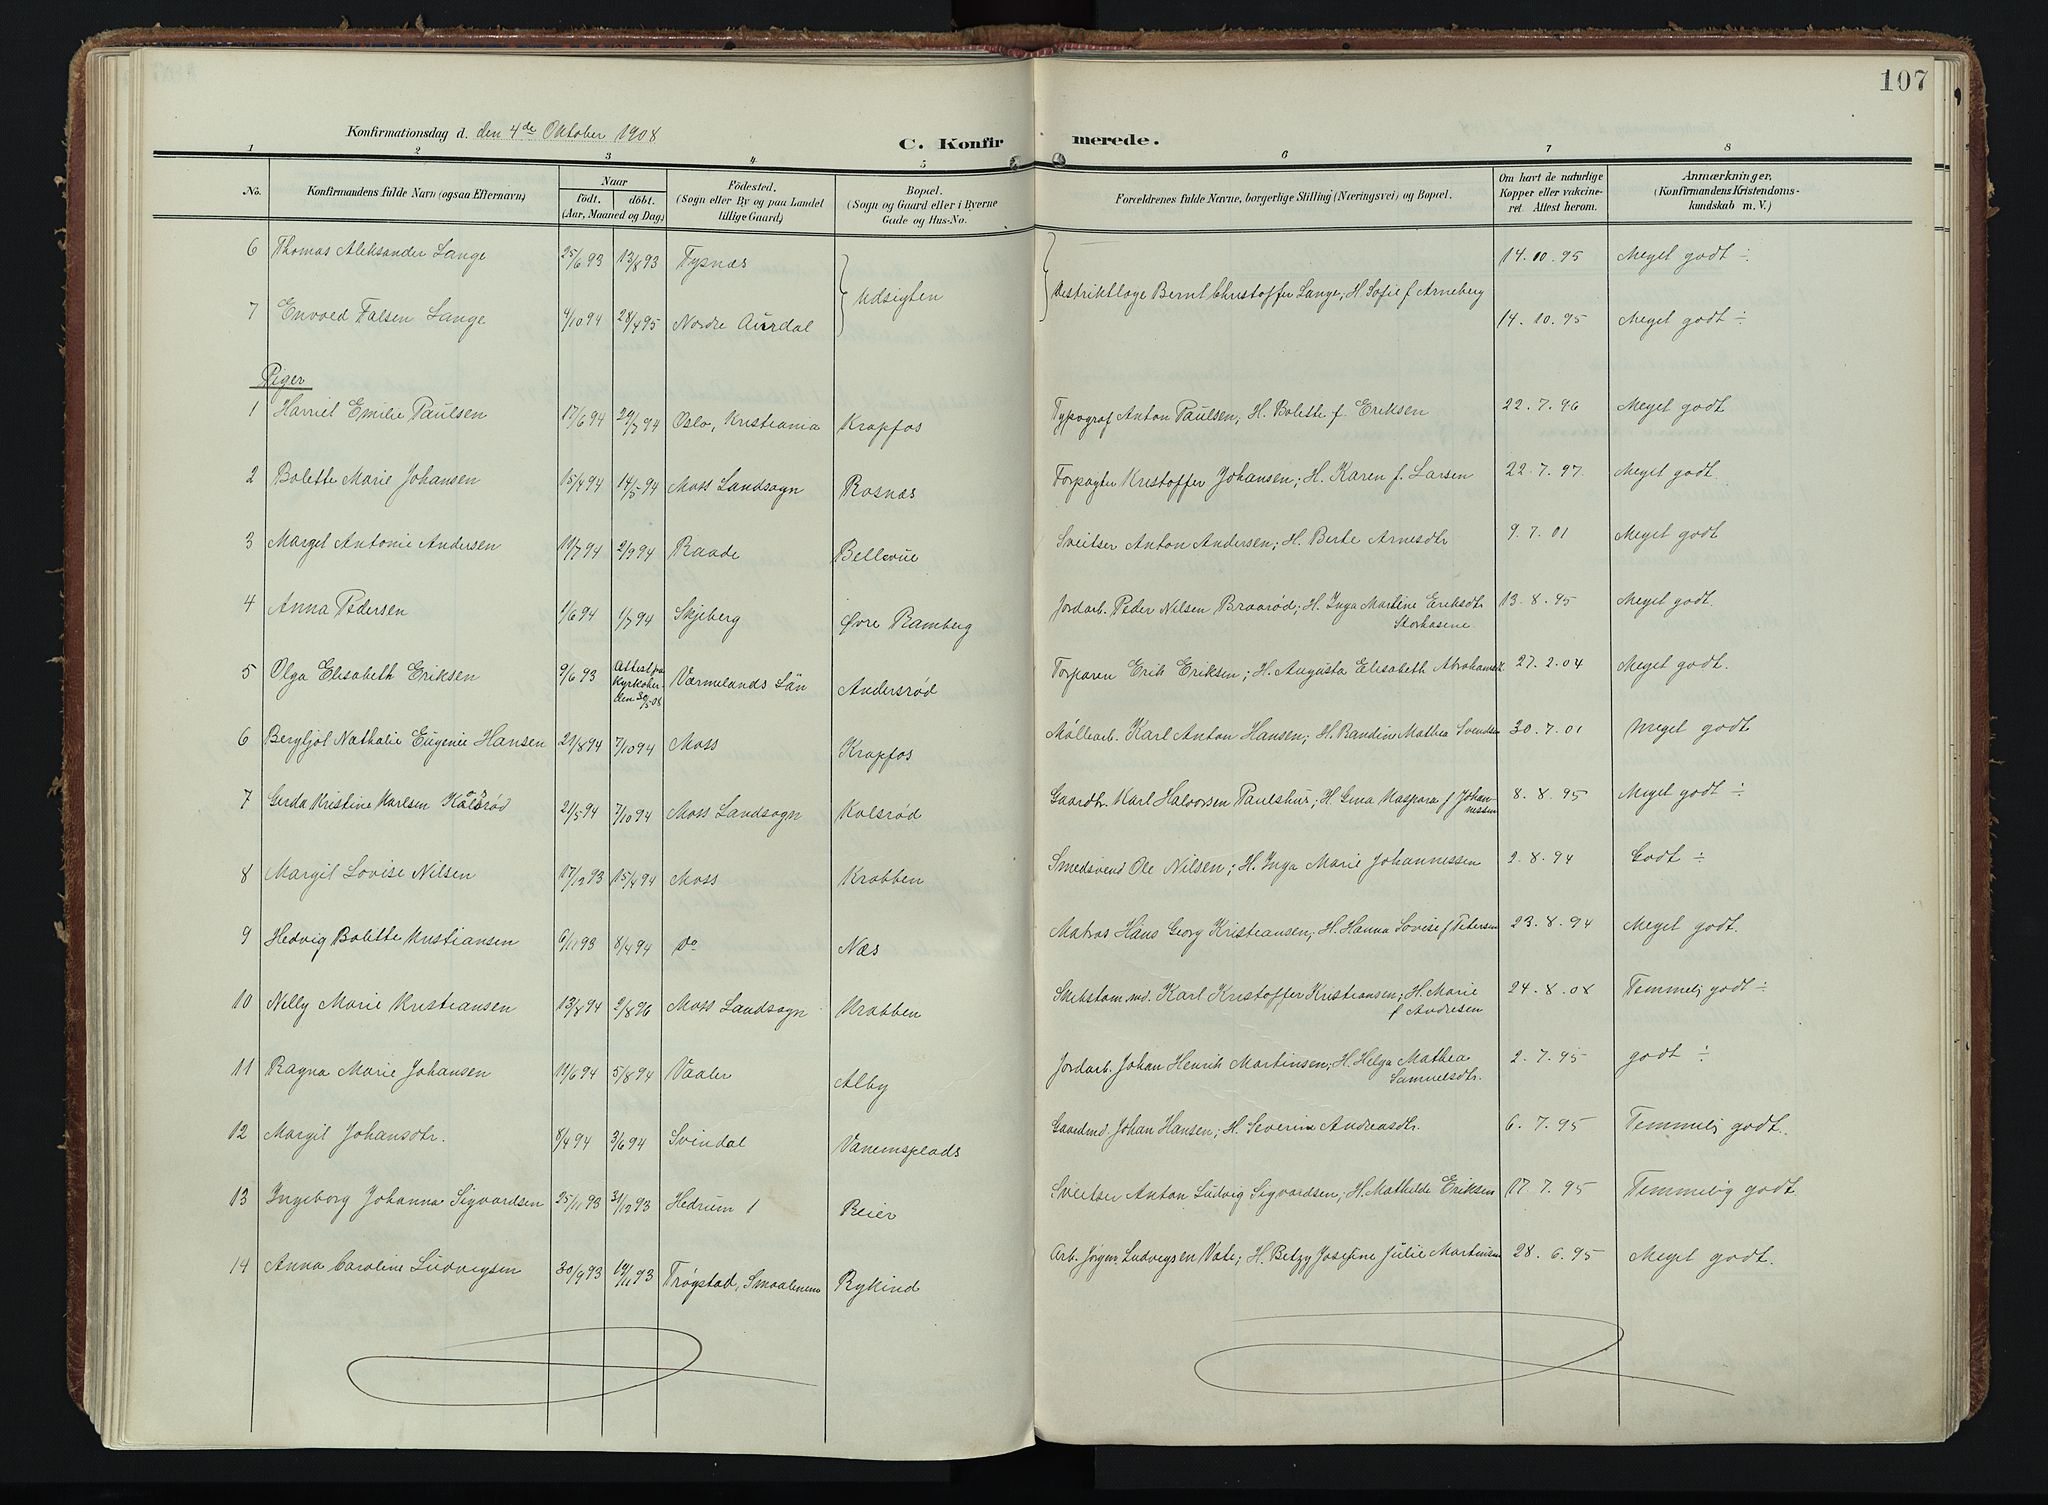 107
Konfirmationsdag d. den 4de Oktober 1908
C. Konfirmerede.
1 2 3 4 5 6 7 8
No. Konfirmandens fulde Navn (ogsaa Efternavn) Naar födt. döbt. (Aar, Maaned og Dag) Födested. (Sogn eller By og paa Landet tillige Gaard) Bopæl. (Sogn og Gaard eller i Byerne Gade og Hus-No. Forældrenes fulde Navne, borgerlige Stilling (Næringsvei) og Bopæl. Om havt de naturlige Kopper eller vakcineret. Attest herom. Anmærkninger, (Konfirmandens Kristendomskundskab m. V.)
6 Thomas Aleksander Lange 25/6 93 13/8 93 Tysnæs } Udsigten { Distriktlæge Bernt Christoffer Lange, H. Sofie f Arneberg 14.10.95 Meget godt ÷
7 Envold Falsen Lange 4/10 94 28/4 95 Nordre Aurdal 14.10.95 Meget godt ÷
Piger
1 Harriet Emilie Paulsen 17/6 94 29/7 94 Oslo, Kristiania Krapfos Typograf Anton Paulsen; H. Bolette f. Eriksen 22.7.96 Meget godt
2 Bolette Marie Johansen 15/4 94 14/5 94 Moss Landsogn Rosnæs Forpagter Kristoffer Johansen; H. Karen f. Larsen 22.7.97 Meget godt
3 Margit Antonie Andersen 19/7 94 2/9 94 Raade Bellevue Sveitser Anton Andersen; H. Berte Arnesdtr 9.7.01 Meget godt
4 Anna Pedersen 1/6 94 1/7 94 Skjeberg Øvre Ramberg Jordarb. Peder Nilsen Braarød; H. Inga Martine Eriksdtr Storhasene 13.8.95 Meget godt.
5 Olga Elisabeth Eriksen 9/6 93 Attest fra Kyrkoher. den 30/5 08 Värmlands Län Andersrød Torparen Erik Eriksen; H. Augusta Elisabeth Abrahamsdt 27.2.04 Meget godt.
6 Bergljot Nathalie Eugenie Hansen 29/8 94 7/10 94 Moss Krapfos Møllearb. Karl Anton Hansen; H. Randine Mathea Svendsen 30.7.01 Meget godt
7 Gerda Kristine Karlsen Kolsrød 21/5 94 7/10 94 Moss Landsogn Kolsrød Gaardbr. Karl Halvorsen Paulshus; H. Gina Kaspara f Johannessen 8.8.95 Meget godt ÷
8 Margit Lovise Nilsen 17/12 93 15/4 94 Moss Krabben Smedsvend Ole Nilsen; H. Inga Marie Johannessen 2.8.94 Godt ÷
9 Hedvig Bolette Kristiansen 6/11 93 8/4 94 do Næs Matros Hans Georg Kristiansen; H. Hanna Lovise f Petersen 23.8.94 Meget godt.
10 Nelly Marie Kristiansen 13/8 94 2/8 96 Moss Landsogn Krabben Skibstømmd. Karl Kristoffer Kristiansen; H. Marie f Andresen 24.8.08 Temmeli godt ÷
11 Ragna Marie Johansen 11/6 94 5/8 94 Vaaler Alby Jordarb. Johan Henrik Martinsen; H. Helga Mathea Samuelsdtr. 2.7.95 godt ÷
12 Margit Johansdtr. 8/4 94 3/6 94 Svindal Vanemsplads Gaardmd Johan Hansen; H. Severine Andreasdtr. 6.7.95 Temmeli godt.
13 Ingeborg Johanna Sigvardsen 25/11 93 31/12 93 Hedrum Reier Sveitser Anton Ludvig Sigvardsen; H. Mathilde Eriksen 17.7.95 Temmelig godt
14 Anna Caroline Ludvigsen 30/9 93 19/11 93 Trøgstad, Smaalenene Rykind Arb. Jørgen Ludvigsen Vate; H. Betzy Josefine Julie Martinsen 28.6.95 Meget godt.